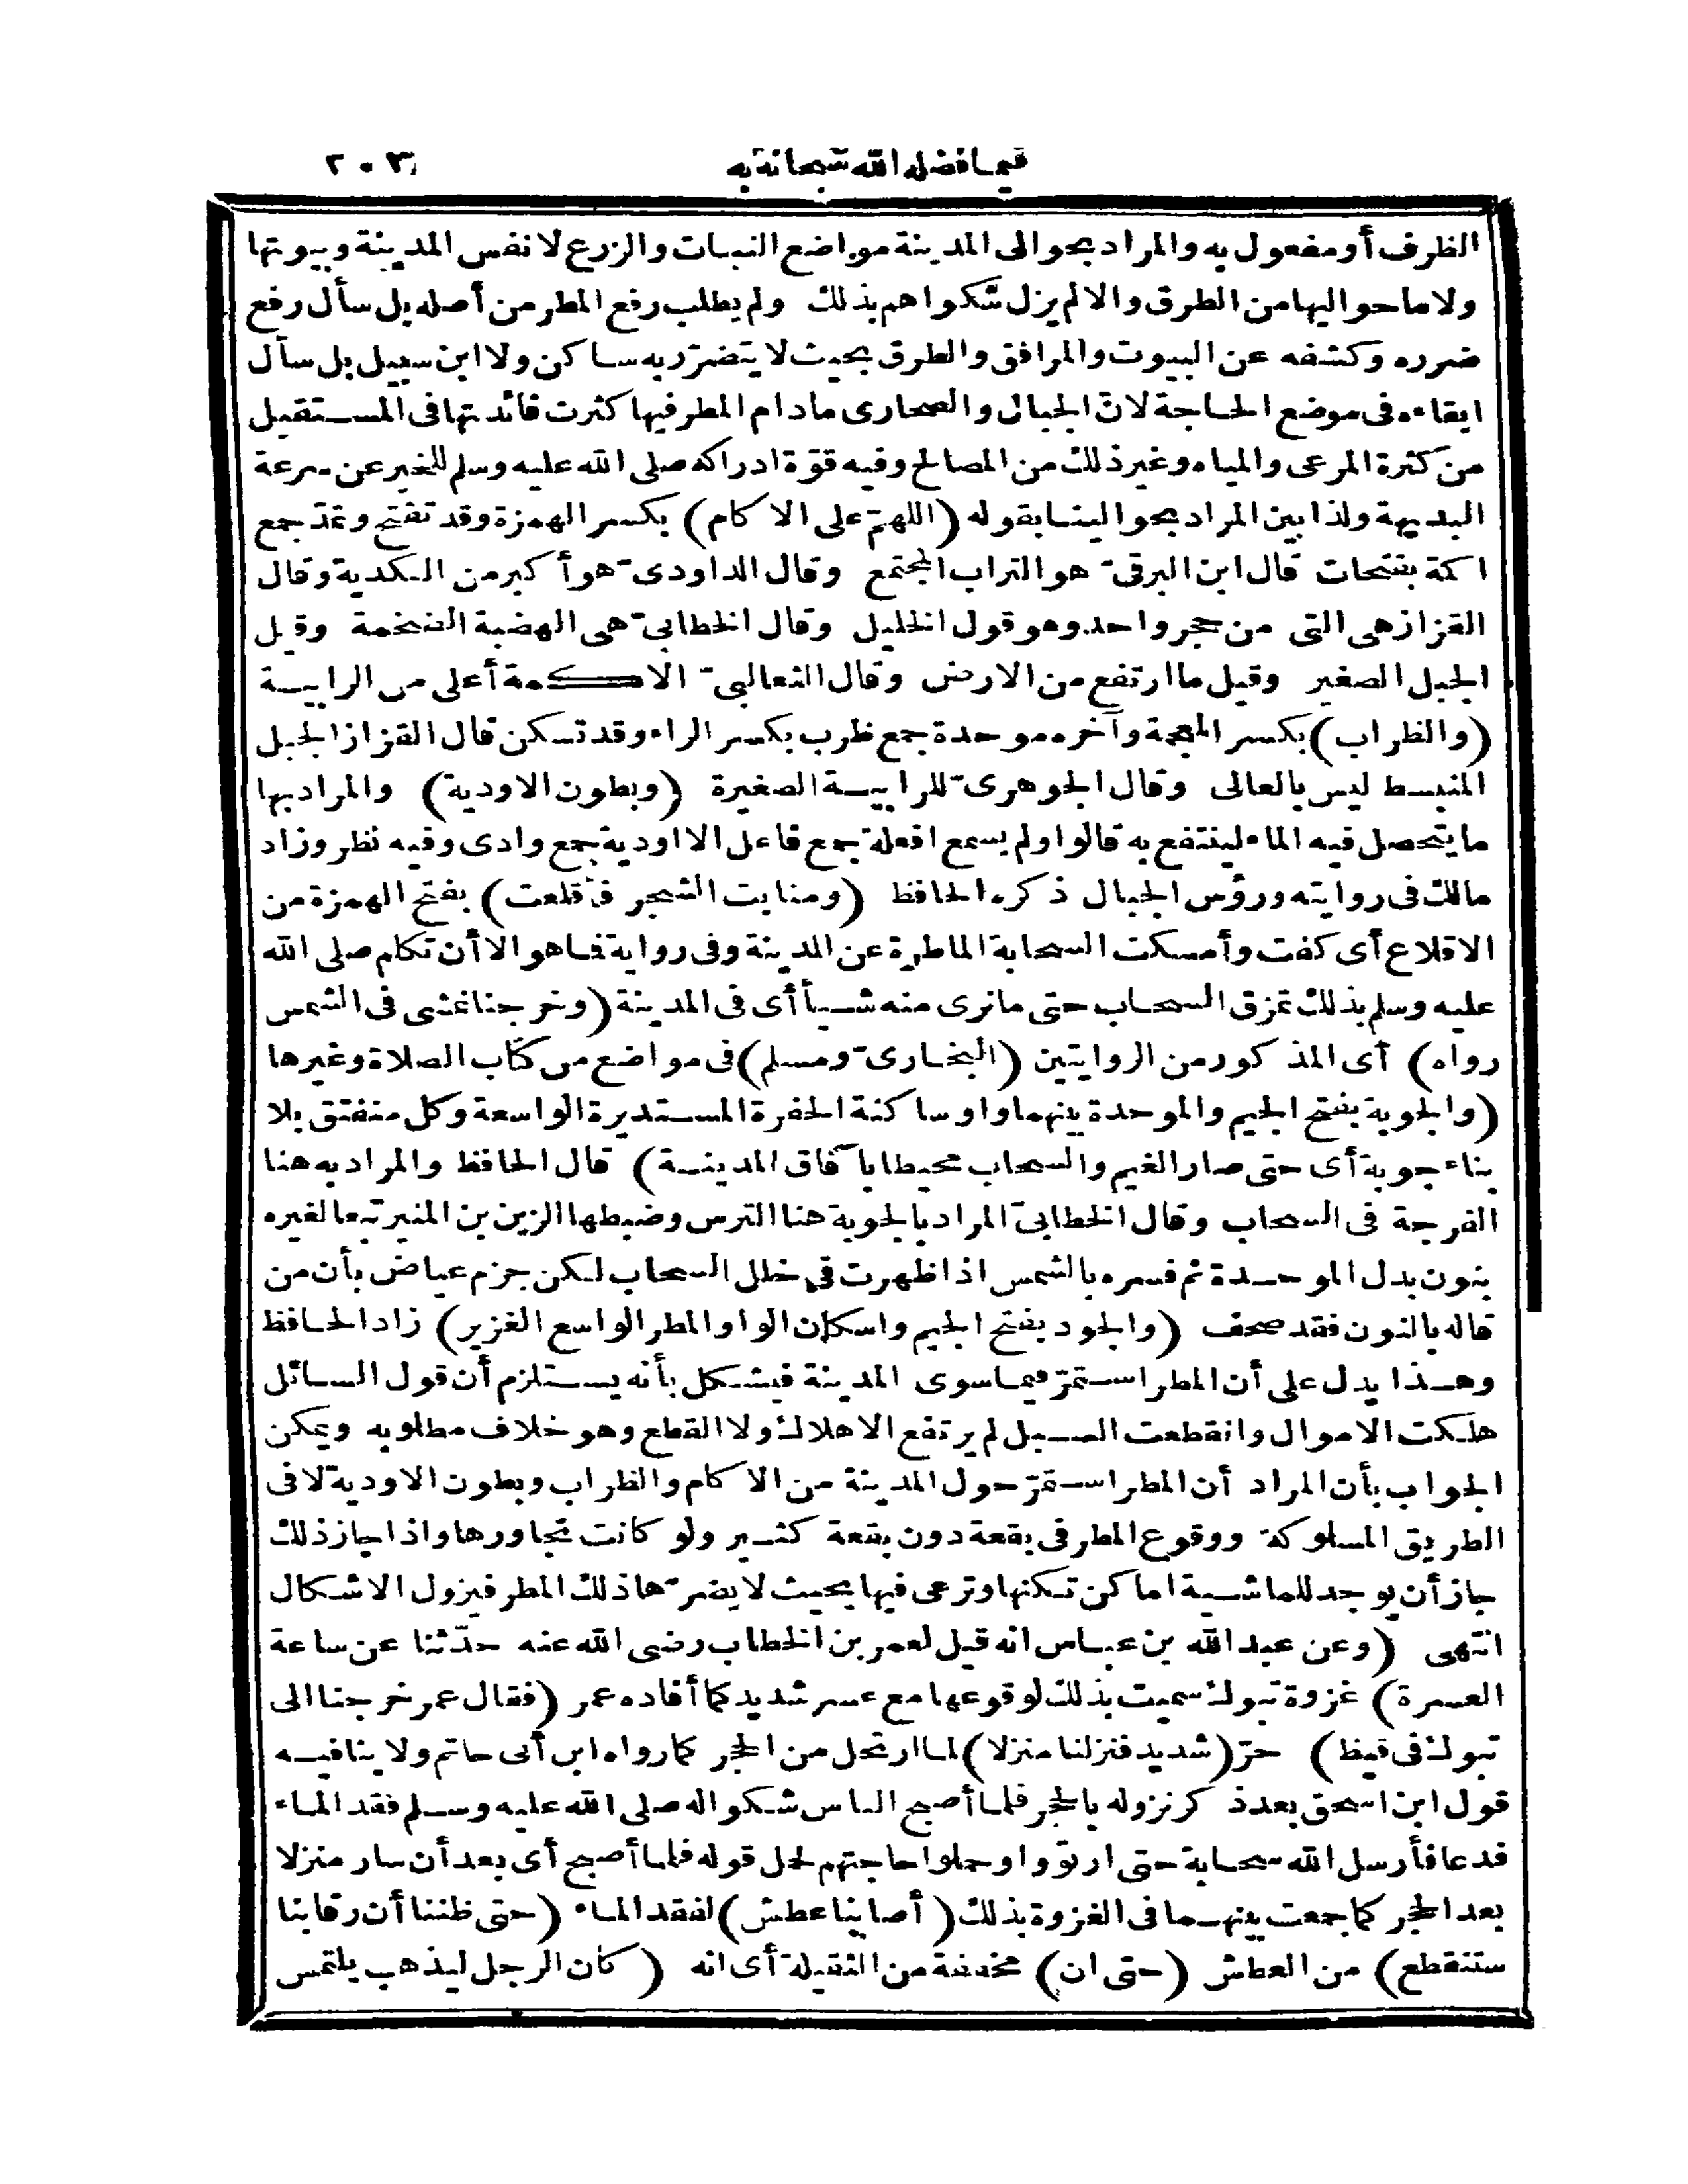 فيما فضله الله سبحانه به ٢٠٣
الظرف أو مفعول به والمراد بحوالى المدينة مواضع النبات والزرع لا نفس المدينة وبيوتها
ولا ما حواليها من الطرق والا لم يزل شكواهم بذلك ولم يطلب رفع المطر من أصله بل سأل رفع
ضرره وكشفه عن البيوت والمرافق والطرق بحيث لا يتضرّر به ساكن ولا ابن سبيل بل سأل
ابقاءه فى موضع الحاجة لانّ الجبال والصحارى مادام المطر فيها كثرت فائدتها فى المستقبل
من كثرة المرعى والمياه وغير ذلك من المصالح وفيه قوّة ادراكه صلى الله عليه وسلم للخير عن سرعة
البديهة ولذا بين المراد بحوالينا بقوله (اللهمّ على الاكام) بكسر الهمزة وقد تفتح وتمدّ جمع
اكمة بفتحات قال ابن البرقىّ هو التراب المجتمع وقال الداودىّ هو أكبر من الكدية وقال
القزاز هى التى من حجر واحد وهو قول الخليل وقال الخطابىّ هى الهضبة الضخمة وقيل
الجبل الصغير وقيل ما ارتفع من الارض وقال الثعالبىّ الاكمة أعلى من الرابية
(والظراب) بكسر المعجمة وآخره موحدة جمع ظرب بكسر الراء وقد تسكن قال القزاز الجبل
المنبسط ليس بالعالى وقال الجوهرىّ للرابية الصغيرة (وبطون الاودية) والمراد بها
ما يتحصل فيه الماء لينتفع به قالوا ولم يسمع افعلة جمع فاعل الا اودية جمع وادى وفيه نظر وزاد
مالك فى روايته ورؤس الجبال ذكره الحافظ (ومنابت الشجر فأقلعت) بفتح الهمزة من
الاقلاع أى كفت وأمسكت السحابة الماطرة عن المدينة وفى رواية فما هو الا أن تكلم صلى الله
عليه وسلم بذلك تمزق السحاب حتى ما نرى منه شيأ أى فى المدينة (وخرجنا نمشى فى الشمس
رواه) أى المذكور من الروايتين (البخارىّ ومسلم) فى مواضع من كتاب الصلاة وغيرها
(والجوبة بفتح الجيم والموحدة بينهما واو ساكنة الحفرة المستديرة الواسعة وكل منفتق بلا
بناء جوبة أى حتى صار الغيم والسحاب محيطا بآفاق المدينة) قال الحافظ والمراد به هنا
الفرجة فى السحاب وقال الخطابىّ المراد بالجوبة هنا الترس وضبطها الزين بن المنير تبعا لغيره
بنون بدل الموحدة ثم فسره بالشمس اذا ظهرت فى خلل السحاب لكن جزم عياض بأن من
قاله بالنون فقد صحف (والجود بفتح الجيم واسكان الواو المطر الواسع الغزير) زاد الحافظ
وهذا يدل على أن المطر استمرّ فيما سوى المدينة فيشكل بأنه يستلزم أن قول السائل
هلكت الاموال وانقطعت السبل لم يرتفع الاهلاك ولا القطع وهو خلاف مطلوبه ويمكن
الجواب بأن المراد أن المطر استمرّ حول المدينة من الاكام والظراب وبطون الاودية لا فى
الطريق المسلوكة ووقوع المطر فى بقعة دون بقعة كثير ولو كانت تجاورها واذا جاز ذلك
جاز أن يوجد للماشية اماكن تكنها وترعى فيها بحيث لا يضرّها ذلك المطر فيزول الاشكال
انتهى (وعن عبد الله بن عباس انه قيل لعمر بن الخطاب رضى الله عنه حدّثنا عن ساعة
العسرة) غزوة تبوك سميت بذلك لوقوعها مع عسر شديد كما أفاده عمر (فقال عمر خرجنا الى
تبوك فى قيظ) حرّ (شديد فنزلنا منزلا) لما ارتحل من الحجر كما رواه ابن أبى حاتم ولا ينافيه
قول ابن اسحق بعد ذكر نزوله بالحجر فلما أصبح الناس شكوا له صلى الله عليه وسلم فقد الماء
فدعا فأرسل الله سحابة حتى ارتووا وحملوا حاجتهم لحل قوله فلما أصبح أى بعد أن سار منزلا
بعد الحجر كما جمعت بينهما فى الغزوة بذلك (أصابنا عطش) لفقد الماء (حتى ظننا أن رقابنا
ستنقطع) من العطش (حتى ان) مخففة من الثقيلة أى انه (كان الرجل ليذهب يلتمس